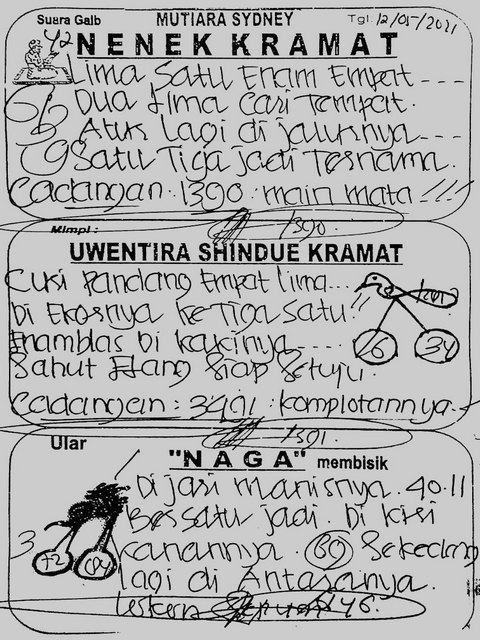 Suara Gaib MUTIARA SYDNEY Tgl. 12/05/2021
NENEK KRAMAT
42
Lima Satu Enam Empat ----
Dua Lima Cari Tempat.
Atur Lagi di jalurnya ---
Satu Tiga jadi Ternama.
Cadangan: 1390: main mata !!!
1390.
Mimpi:
UWENTIRA SHINDUE KRAMAT
Curi Pandang Empat lima...
Di Ekornya ke Tiga Satu !!
Enamblas Di kakinya ----
Sahut Elang Siap Setuju.
16 34
Cadangan: 3491: komplotannya
1391.
Ular
"NAGA" membisik
Di jari manisnya. 40.11
Bersatu jadi. Di kiri
3
kanannya. 89 Sekedang
72
lagi di Antaranya.